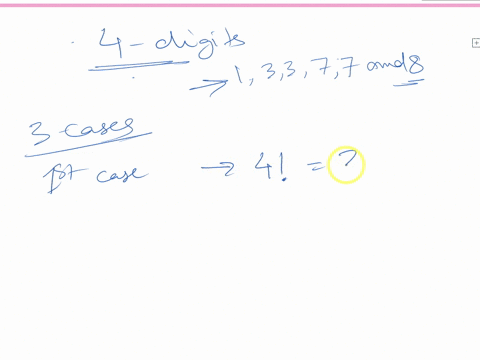 4-digits
→ 1, 3, 3, 7, 7 and 8
3 cases
1st case → 4! = 2